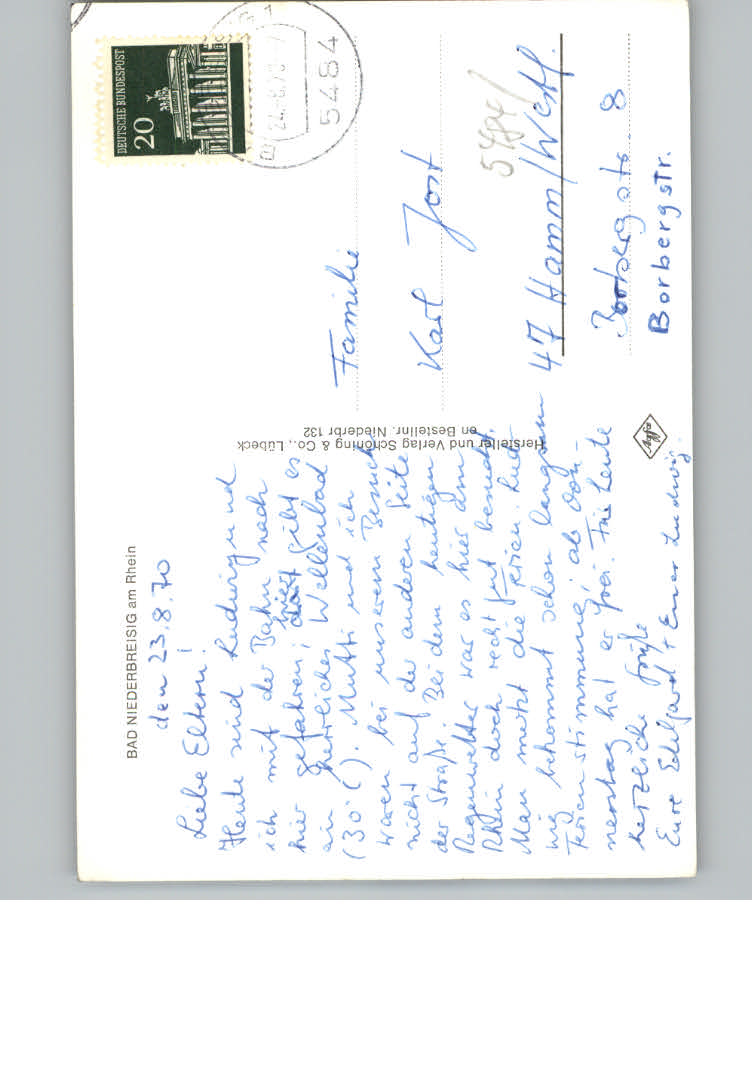 BAD NIEDERBREISIG am Rhein
den 23.8.70
Liebe Eltern!
Heute sind Ludwig und
ich mit der Bahn nach
hier gefahren; hier gibt es
ein herrliches Wellenbad
(30° C). Mutti und ich
waren bei unserem Besuch
nicht auf der anderen Seite
der Straße. Bei dem heutigen
Regenwetter war es hier am
Rhein doch recht gut besucht.
Man merkt die Ferien. Lud-
wig bekommt schon langsam
Ferienstimmung; ab Don-
nerstag hat er frei. Für heute
herzliche Grüße
Eure Edelgard + Euer Ludwig.
Hersteller und Verlag Schöning & Co., Lübeck
en Bestellnr. Niederbr 132
Agfa
DEUTSCHE BUNDESPOST
20
24.-8.70
5484
Familie
Karl Jost
5484
47 Hamm/Westf.
8
Borbergstr.